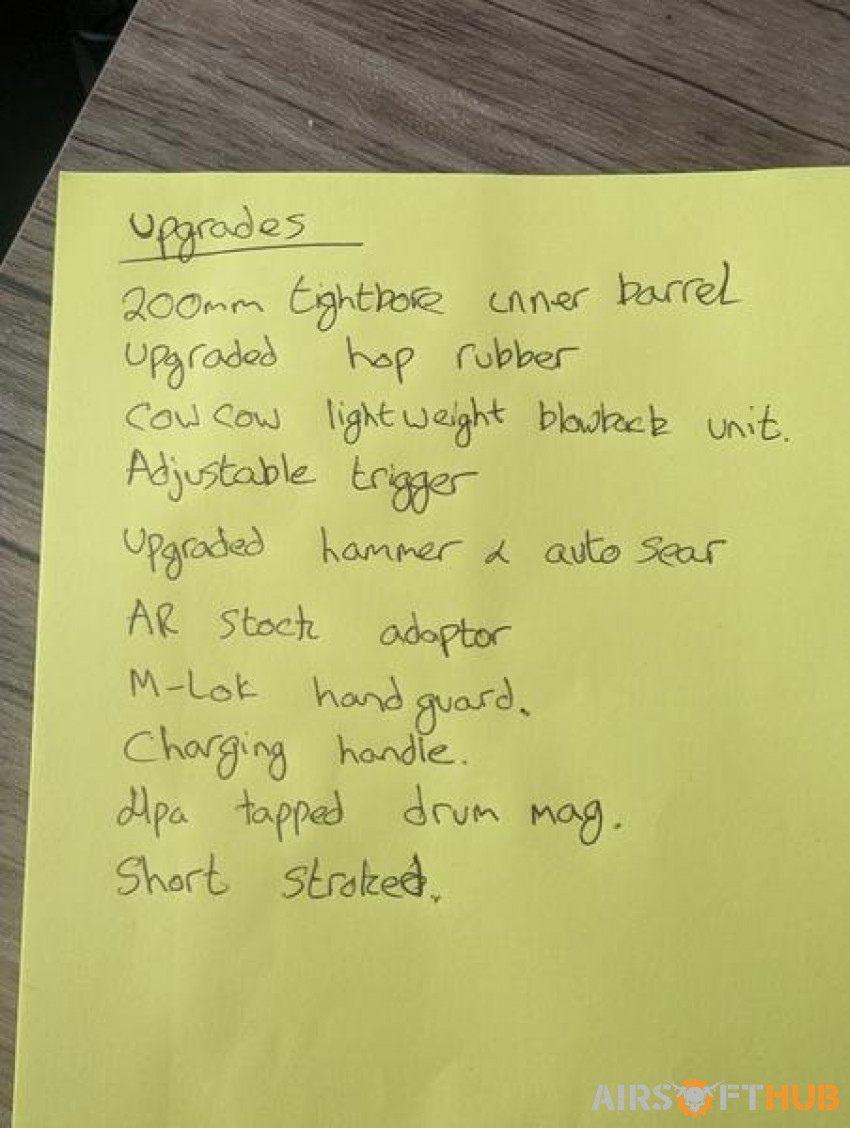 Upgrades
200mm tightbore inner barrel
Upgraded hop rubber
Cow Cow lightweight blowback unit.
Adjustable trigger
Upgraded hammer & auto sear
AR stock adaptor
M-Lok hand guard.
Charging handle.
Hpa tapped drum mag.
Short stroked.
AIRSOFTHUB